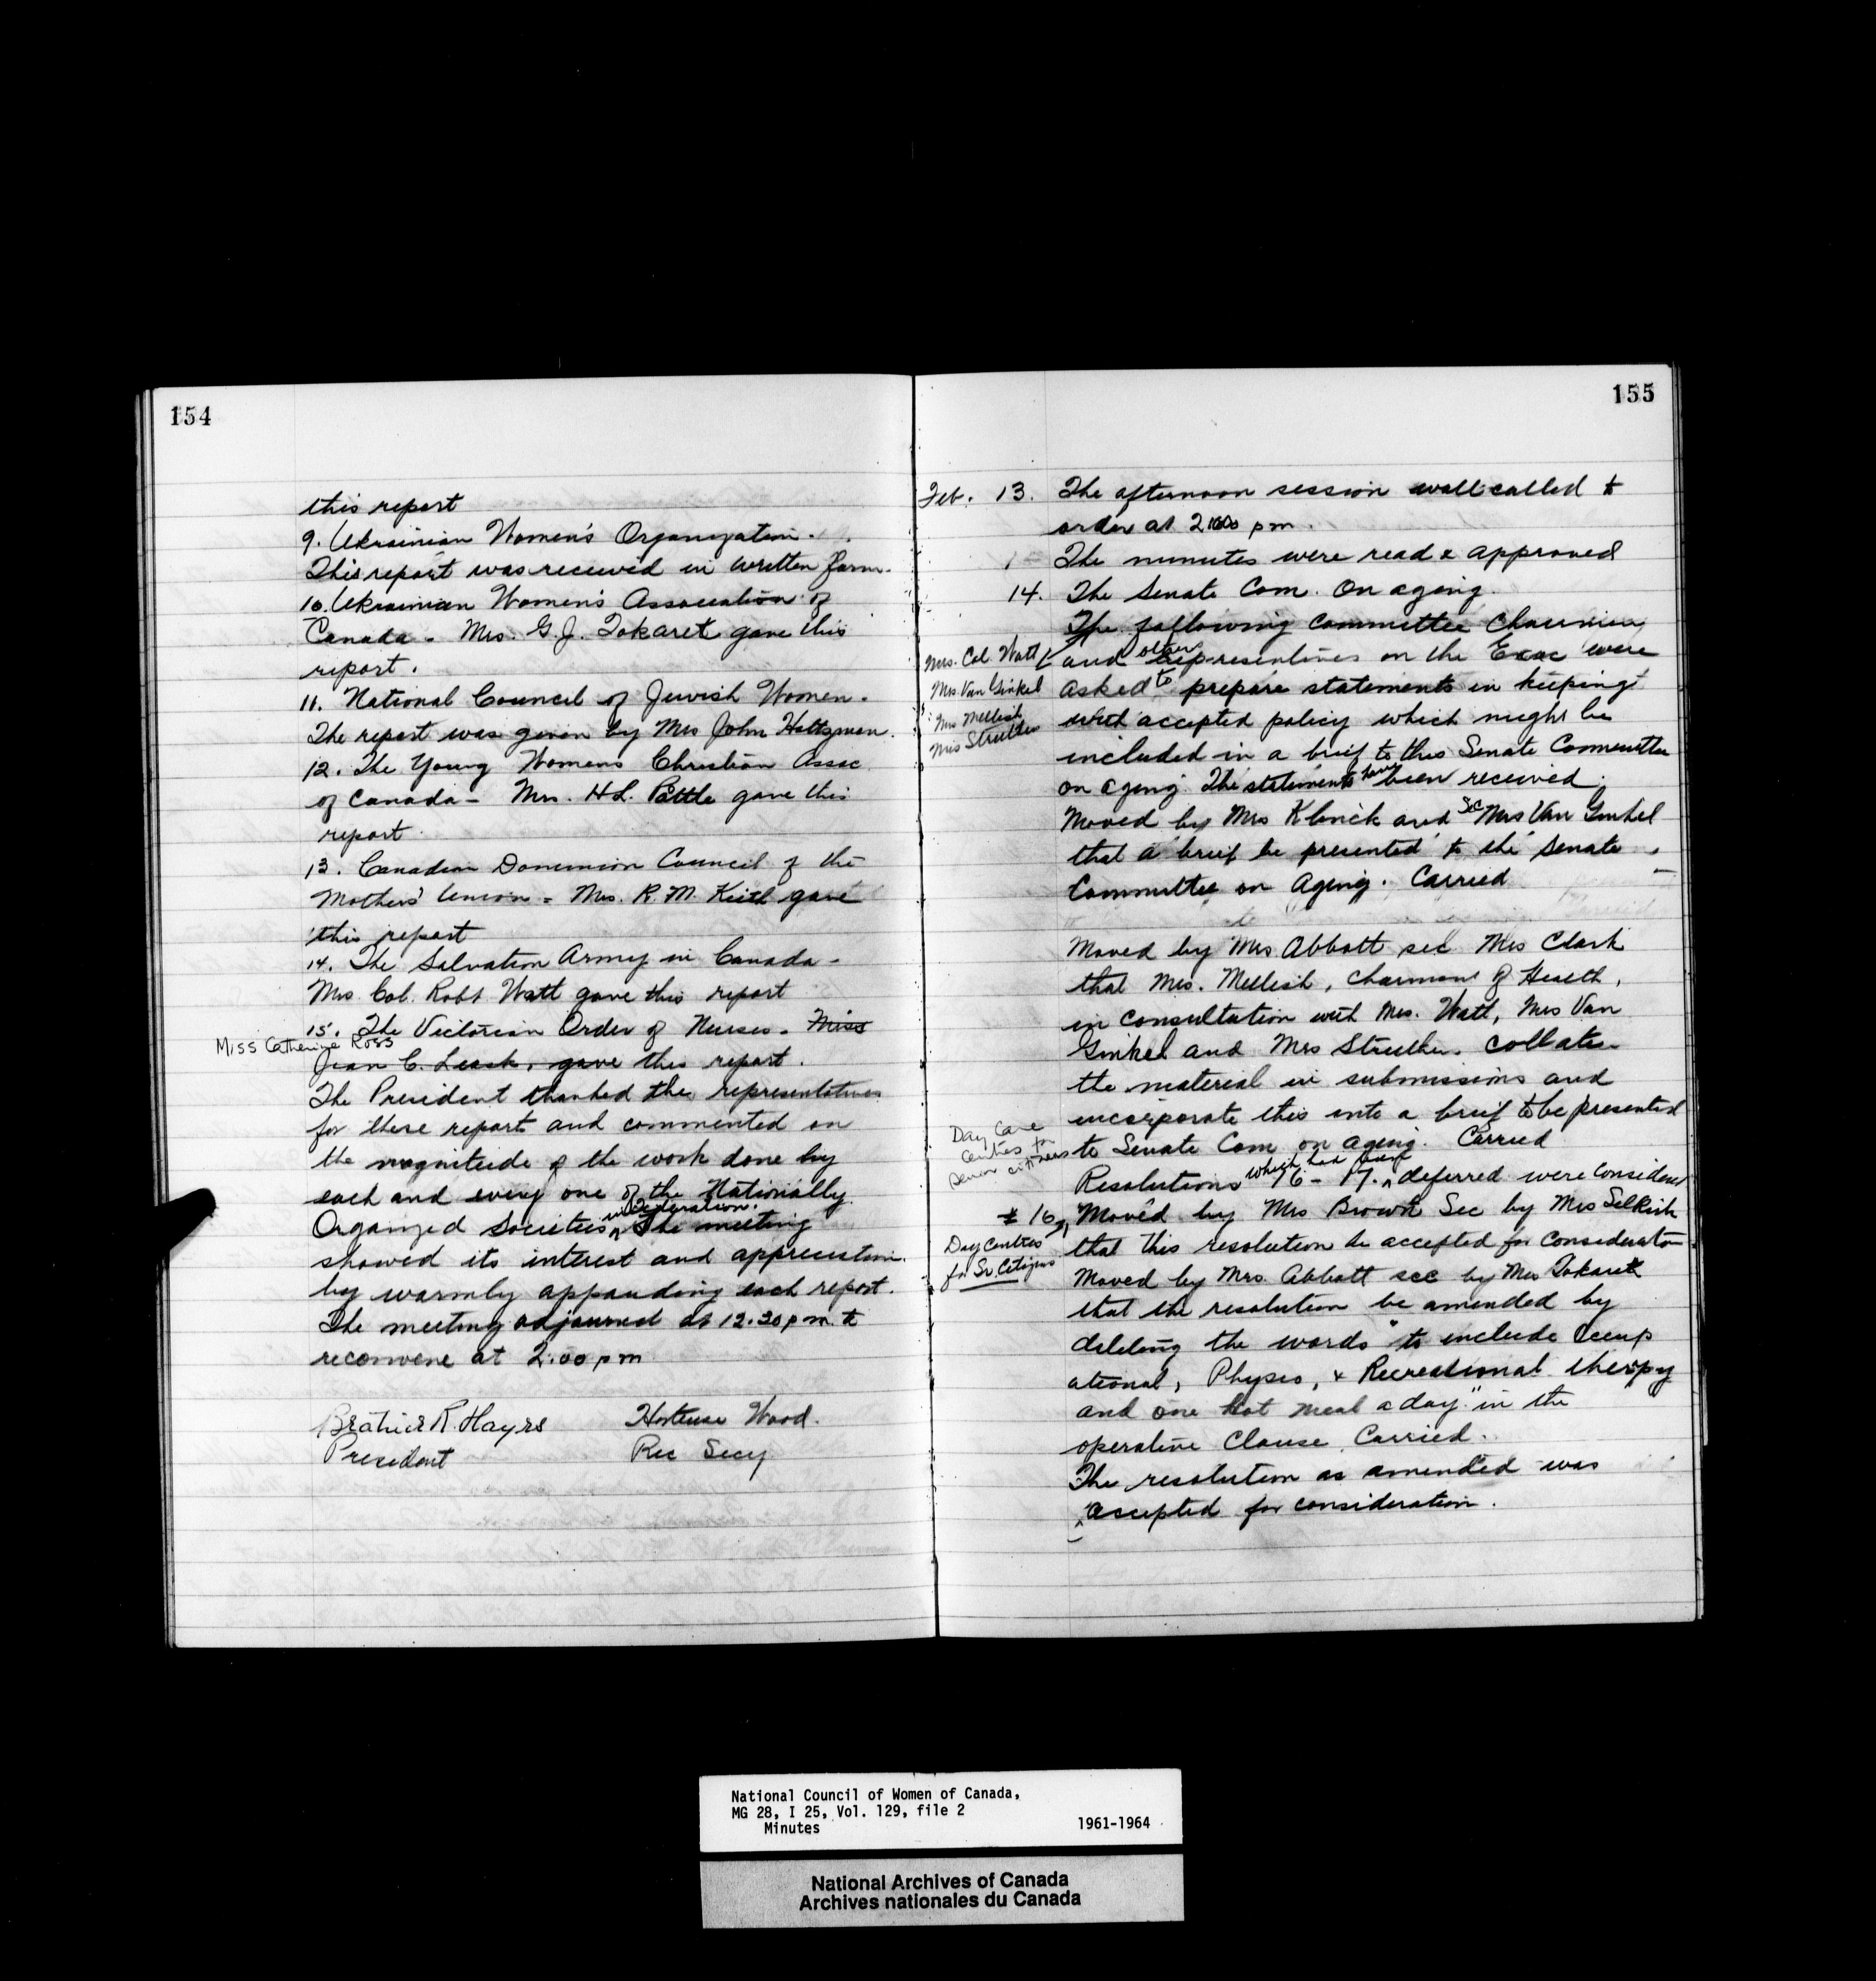 154
this report
9. Ukrainian Women's Organization.
This report was received in written form.
10. Ukrainian Women's Association of
Canada - Mrs. G.J. Tokaret gave this
report.
11. National Council of Jewish Women.
The report was given by Mrs John Holtzman.
12. The Young Womens Christian Assoc
of Canada - Mrs. H.L. Pottle gave this
report
13. Canadian Dominion Council of the
Mothers' Union - Mrs. R.M. Keith gave
this report
14. The Salvation Army in Canada -
Mrs Col. Robt Watt gave this report
15. The Victorian Order of Nurses - Miss
Miss Catherine Ross
Jean C. Leask, gave this report.
The President thanked the representatives
for these report and commented on
the magnitude of the work done by
each and every one of the Nationally
Organized Societies in Federation. The meeting
showed its interest and appreciation
by warmly appauding each report.
The meeting adjourned at 12.30 p.m. to
reconvene at 2.00 pm
Beatrice R. Hayes Hortense Wood.
President Rec Secy
155
Feb. 13. The afternoon session was called to
order at 2 pm.
The minutes were read & approved
14. The Senate Com. On aging.
The following Committee Chairmen
Mrs. Col. Watt
and other representives on the Exec were
Mrs. Van Ginkel
asked to prepare statements in keeping
Mrs Mellish
Mrs Struthers
with accepted policy which might be
included in a brief to this Senate Committee
on aging. The statements have been received.
Moved by Mrs Klinck and Sec Mrs Van Ginkel
that a brief be presented to the Senate
Committee on Aging. Carried
Moved by Mrs Abbott sec. Mrs Clark
that Mrs. Mellish, Chairman of Health,
in consultation with Mrs. Watt, Mrs Van
Ginkel and Mrs Struthers collate
the material in submissions and
incorporate this into a brief to be presented
Day Care
Centres for
Senior citizens
to Senate Com on aging. Carried
Resolutions 16 - 17. which had been deferred were considered
# 16 Moved by Mrs Brown Sec by Mrs Selkirk
Day Centres
for Sr. Citizens
that this resolution be accepted for consideration
Moved by Mrs. Abbott sec by Mrs Tokaret
that the resolution be amended by
deleting the words "to include Occup
ational, Physio, & Recreational therapy
and one hot meal a day" in the
operative Clause. Carried.
The resolution as amended was
accepted for consideration.
National Council of Women of Canada,
MG 28, I 25, Vol. 129, file 2
Minutes 1961-1964
National Archives of Canada
Archives nationales du Canada